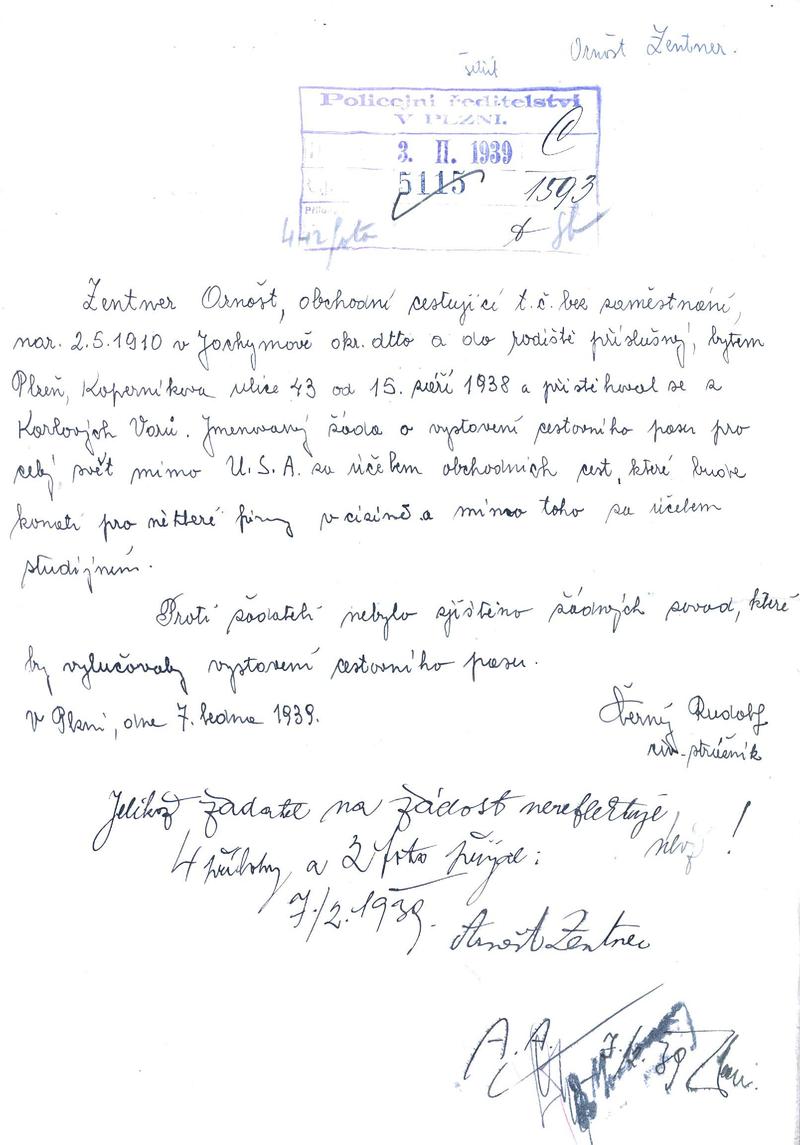 Ornošt Zentner.
šetřit
Policejní ředitelství
V PLZNI.
3. II. 1939
5115
1593
4+2 foto
Zentner Ornošt, obchodní cestující t.č. bez saměstnání,
nar. 2.5.1910 v Jáchymově okr. dtto a do rodiště příslušný, bytem
Plzeň, Koperníkova ulice 43 od 15. září 1938 a přistěhoval se z
Karlových Varů. Jmenovaný žádá o vystavení cestovního pasu pro
celý svět mimo U.S.A. za účelem obchodních cest, které bude
konati pro některé firmy v cizině a mimo toho za účelem
studijním.
Proti žadateli nebylo zjištěno žádných závad, které
by vylučovaly vystavení cestovního pasu.
V Plzni, dne 7. ledna 1939.
Černý Rudolf
strážník
Jelikož žadatel na žádost nereflektuje,
4 přílohy a 2 foto přijal:
7/2.1939.
Arnošt Zentner
A. A.